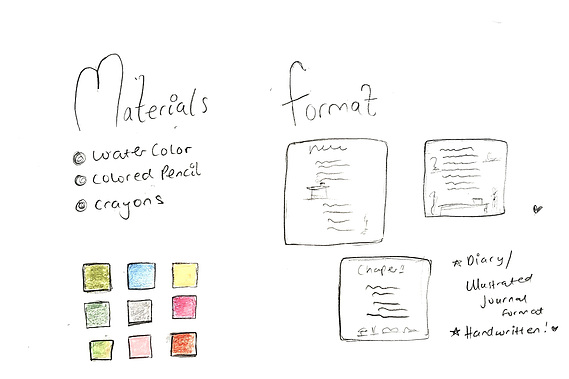 Materials
Water Color
Colored Pencil
Crayons
format
Chaper 1
Diary/
Illustrated
Journal
format
Handwritten!